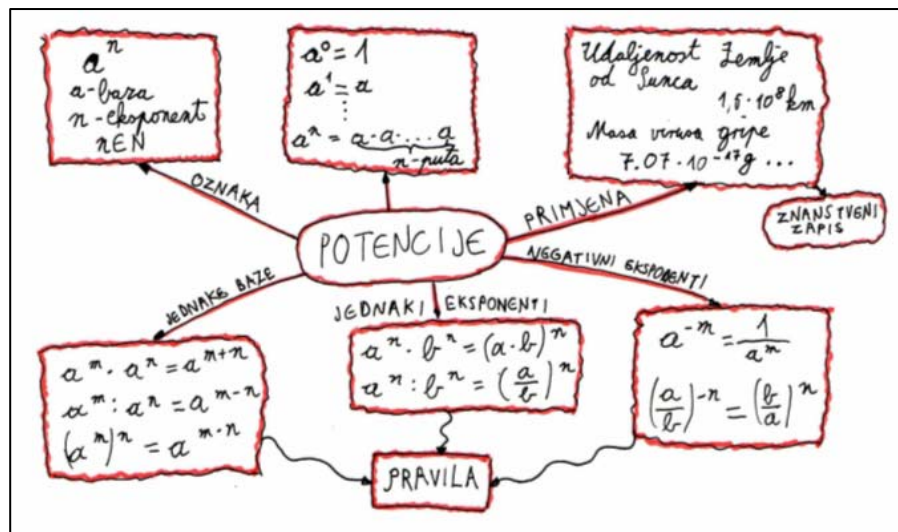 aⁿ
a-baza
n-eksponent
n∈N
a⁰ = 1
a¹ = a
⋮
aⁿ = a·a·...a
n-puta
Udaljenost Zemlje
od Sunca
1,5·10⁸ km
Masa virusa gripe
7.07·10⁻¹⁷g ...
ZNANSTVENI
ZAPIS
OZNAKA
PRIMJENA
POTENCIJE
NEGGATIVNI EKSPODENTI
JEDNAKE BAZE
JEDNAKI EKSPONENTI
aᵐ · aⁿ = aᵐ⁺ⁿ
aᵐ : aⁿ = aᵐ⁻ⁿ
(aᵐ)ⁿ = aᵐ·ⁿ
aⁿ · bⁿ = (a·b)ⁿ
aⁿ : bⁿ = (a/b)ⁿ
a⁻ᵐ = 1/aᵐ
(a/b)⁻ⁿ = (b/a)ⁿ
PRAVILA